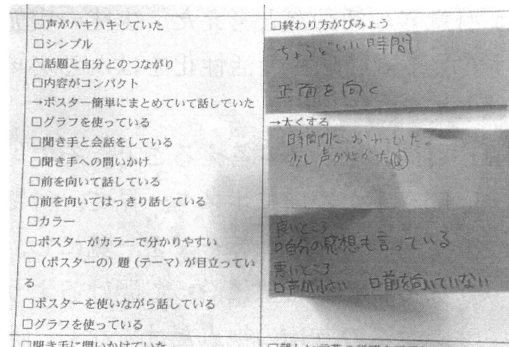 □声がハキハキしていた
□シンプル
□話題と自分とのつながり
□内容がコンパクト
→ポスター簡単にまとめていて話していた
□グラフを使っている
□聞き手と会話をしている
□聞き手への問いかけ
□前を向いて話している
□前を向いてはっきり話している
□カラー
□ポスターがカラーで分かりやすい
□（ポスターの）題（テーマ）が目立ってい
る
□ポスターを使いながら話している
□グラフを使っている
□聞き手に問いかけていた
□終わり方がびみょう
ちょうどいい時間
正面を向く
→太くする
時間内に おわっていた。
少し声が
良いところ
□自分の感想も言っている
悪いところ
□声が小さい □前を向いていない